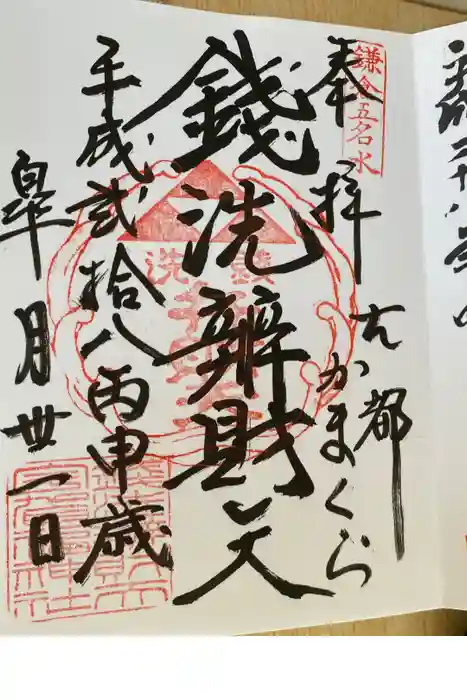 鎌倉五名水
奉拝
古都
かまくら
錢洗辨財天
平成貳拾八丙申歳
皐月卅一日